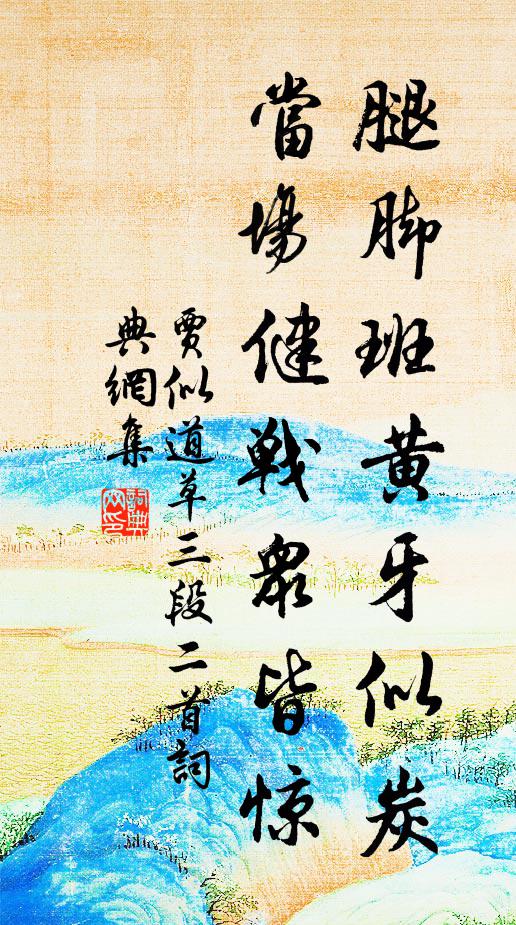 腿脚班黄牙似炭
當場健戰衆皆惊
賈似道草三段二首詞
典網集
詞典
网印